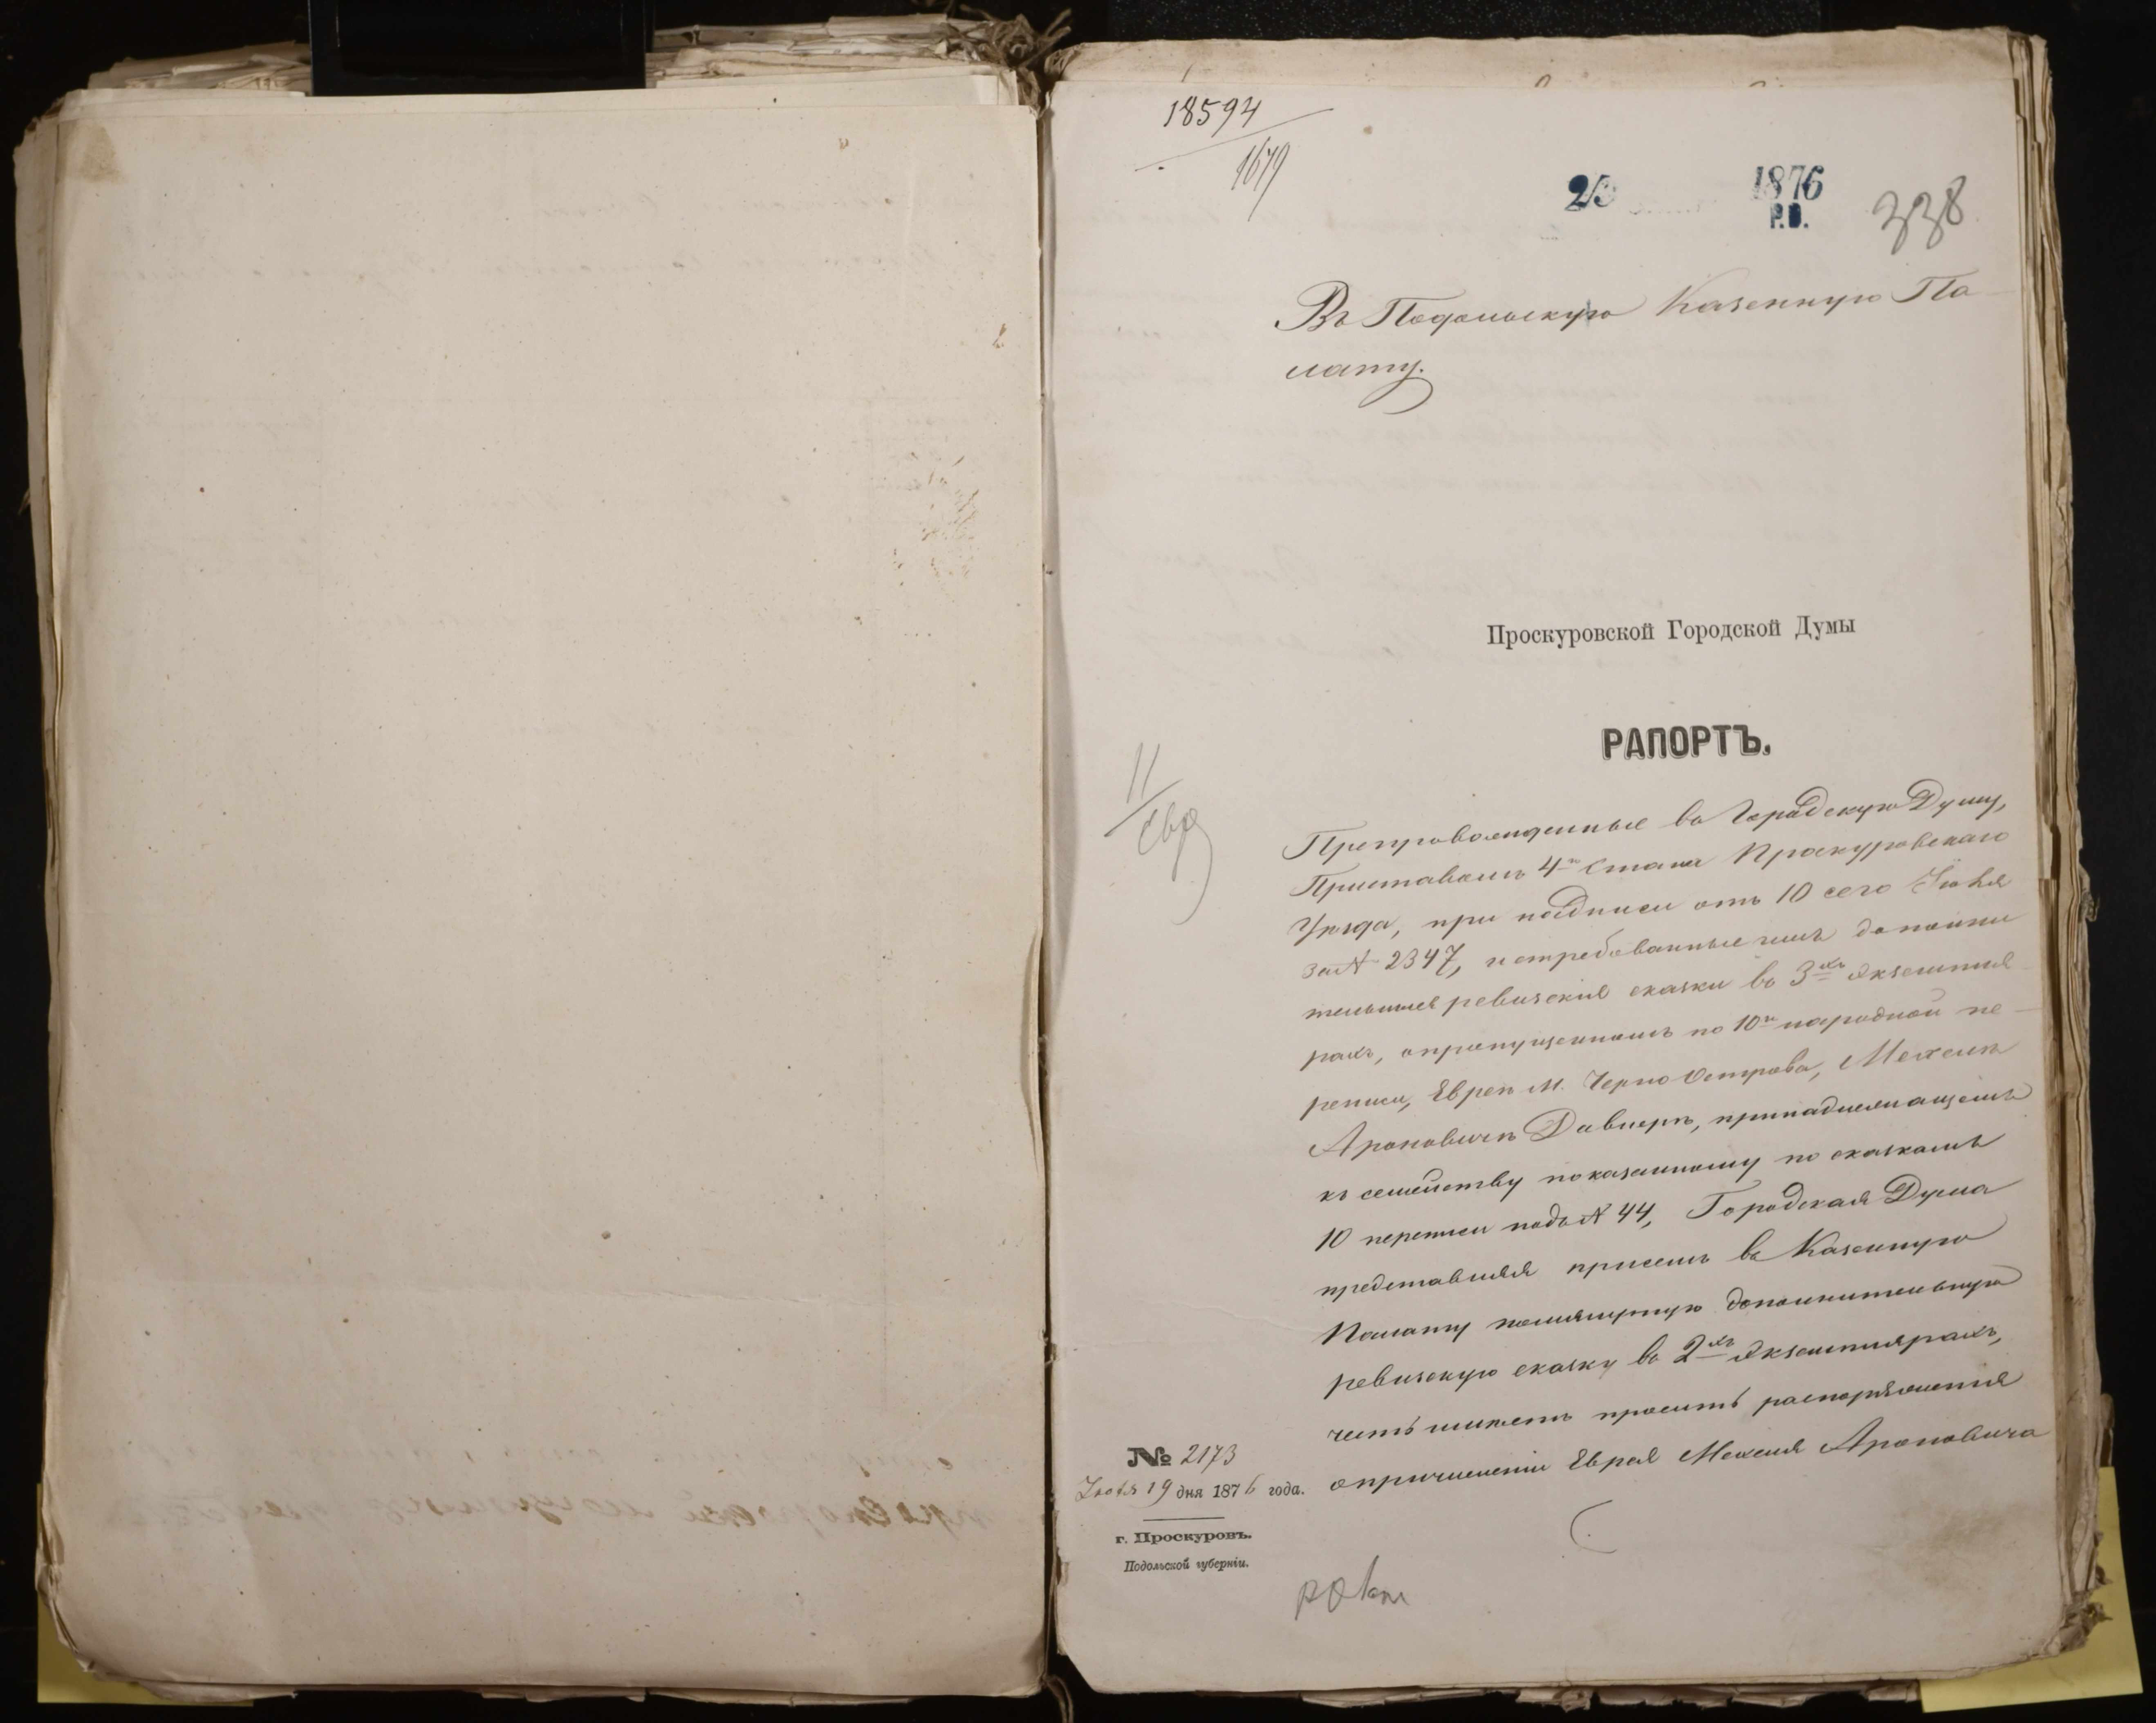 18594
1679
25 1876
Р.D.
338
Въ Подольскую Казенную Па
лату.
Проскуровской Городской Думы
РАПОРТЪ.
11
Препровожденные въ Городскую Думу,
Приставомъ 4го Стана Проскуровскаго
Уѣзда, при надписи отъ 10 сего Іюня
за № 2347, истребованные имъ дополни
тельныя ревизскія сказки въ 3хъ экземпля
рахъ, о пропущенномъ по 10й народной пе
реписи, Евреѣ М. Черно Острова, Мехелѣ
Ароновичѣ Давнерѣ, принадлежащемъ
къ семейству показанному по сказкамъ
10 переписи подъ № 44, Городская Дума
представляя присемъ въ Казенную
Палату помянутую дополнительную
ревизскую сказку въ 2хъ экземплярахъ,
честь имѣетъ просить распоряженія
о причисленіи Еврея Мехеля Ароновича
№ 2173
Іюня 19 дня 1876 года.
г. Проскуровъ.
Подольской губерніи.